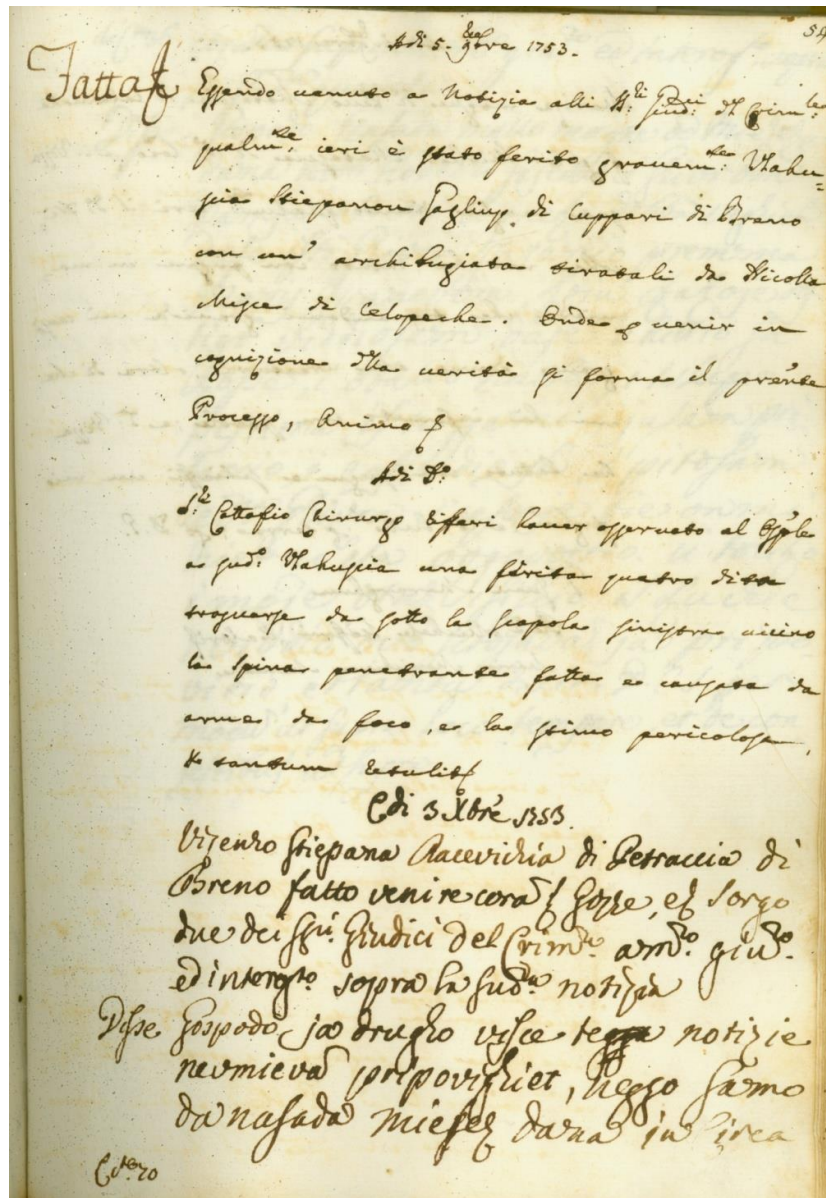 54
Adi 5. Xbre 1753.
Fatta
Essendo venuto a Notizia alli SS:ri Giud:ci del Crim:le
qualm:te ieri è stato ferito gravem:te Vlahu=
scia Stiepanou di Cuppari di Breno
con un' archibugiata tiratali da Nicolla
Misce di Celopeche. Onde p venir in
cognizione dlla verità si forma il prnte
Processo, Animo
Adi Do
Sr Cattafio Chirurgo differì haver osservato al Osple
a sud:o Vlahuscia una ferita quatro dita
da sotto la scapola sinistra vicino
la spina penetrante fatta e causata da
arma da foco, e la stimo pericolosa,
et tantum retulit
Adi 3 Xbre 1753.
Vizenzo Stiepana Racevichia di Petraccia di
Breno fatto venire cora S Gozze, e S Sorgo
due dei SSri Giudici del Crimle amo giuo
ed intergto sopra la sudta notizia
Disse Gospodo, ja drugho visce notizie
neumieva pripovighiet, neggo samo
da nasada miesez dana